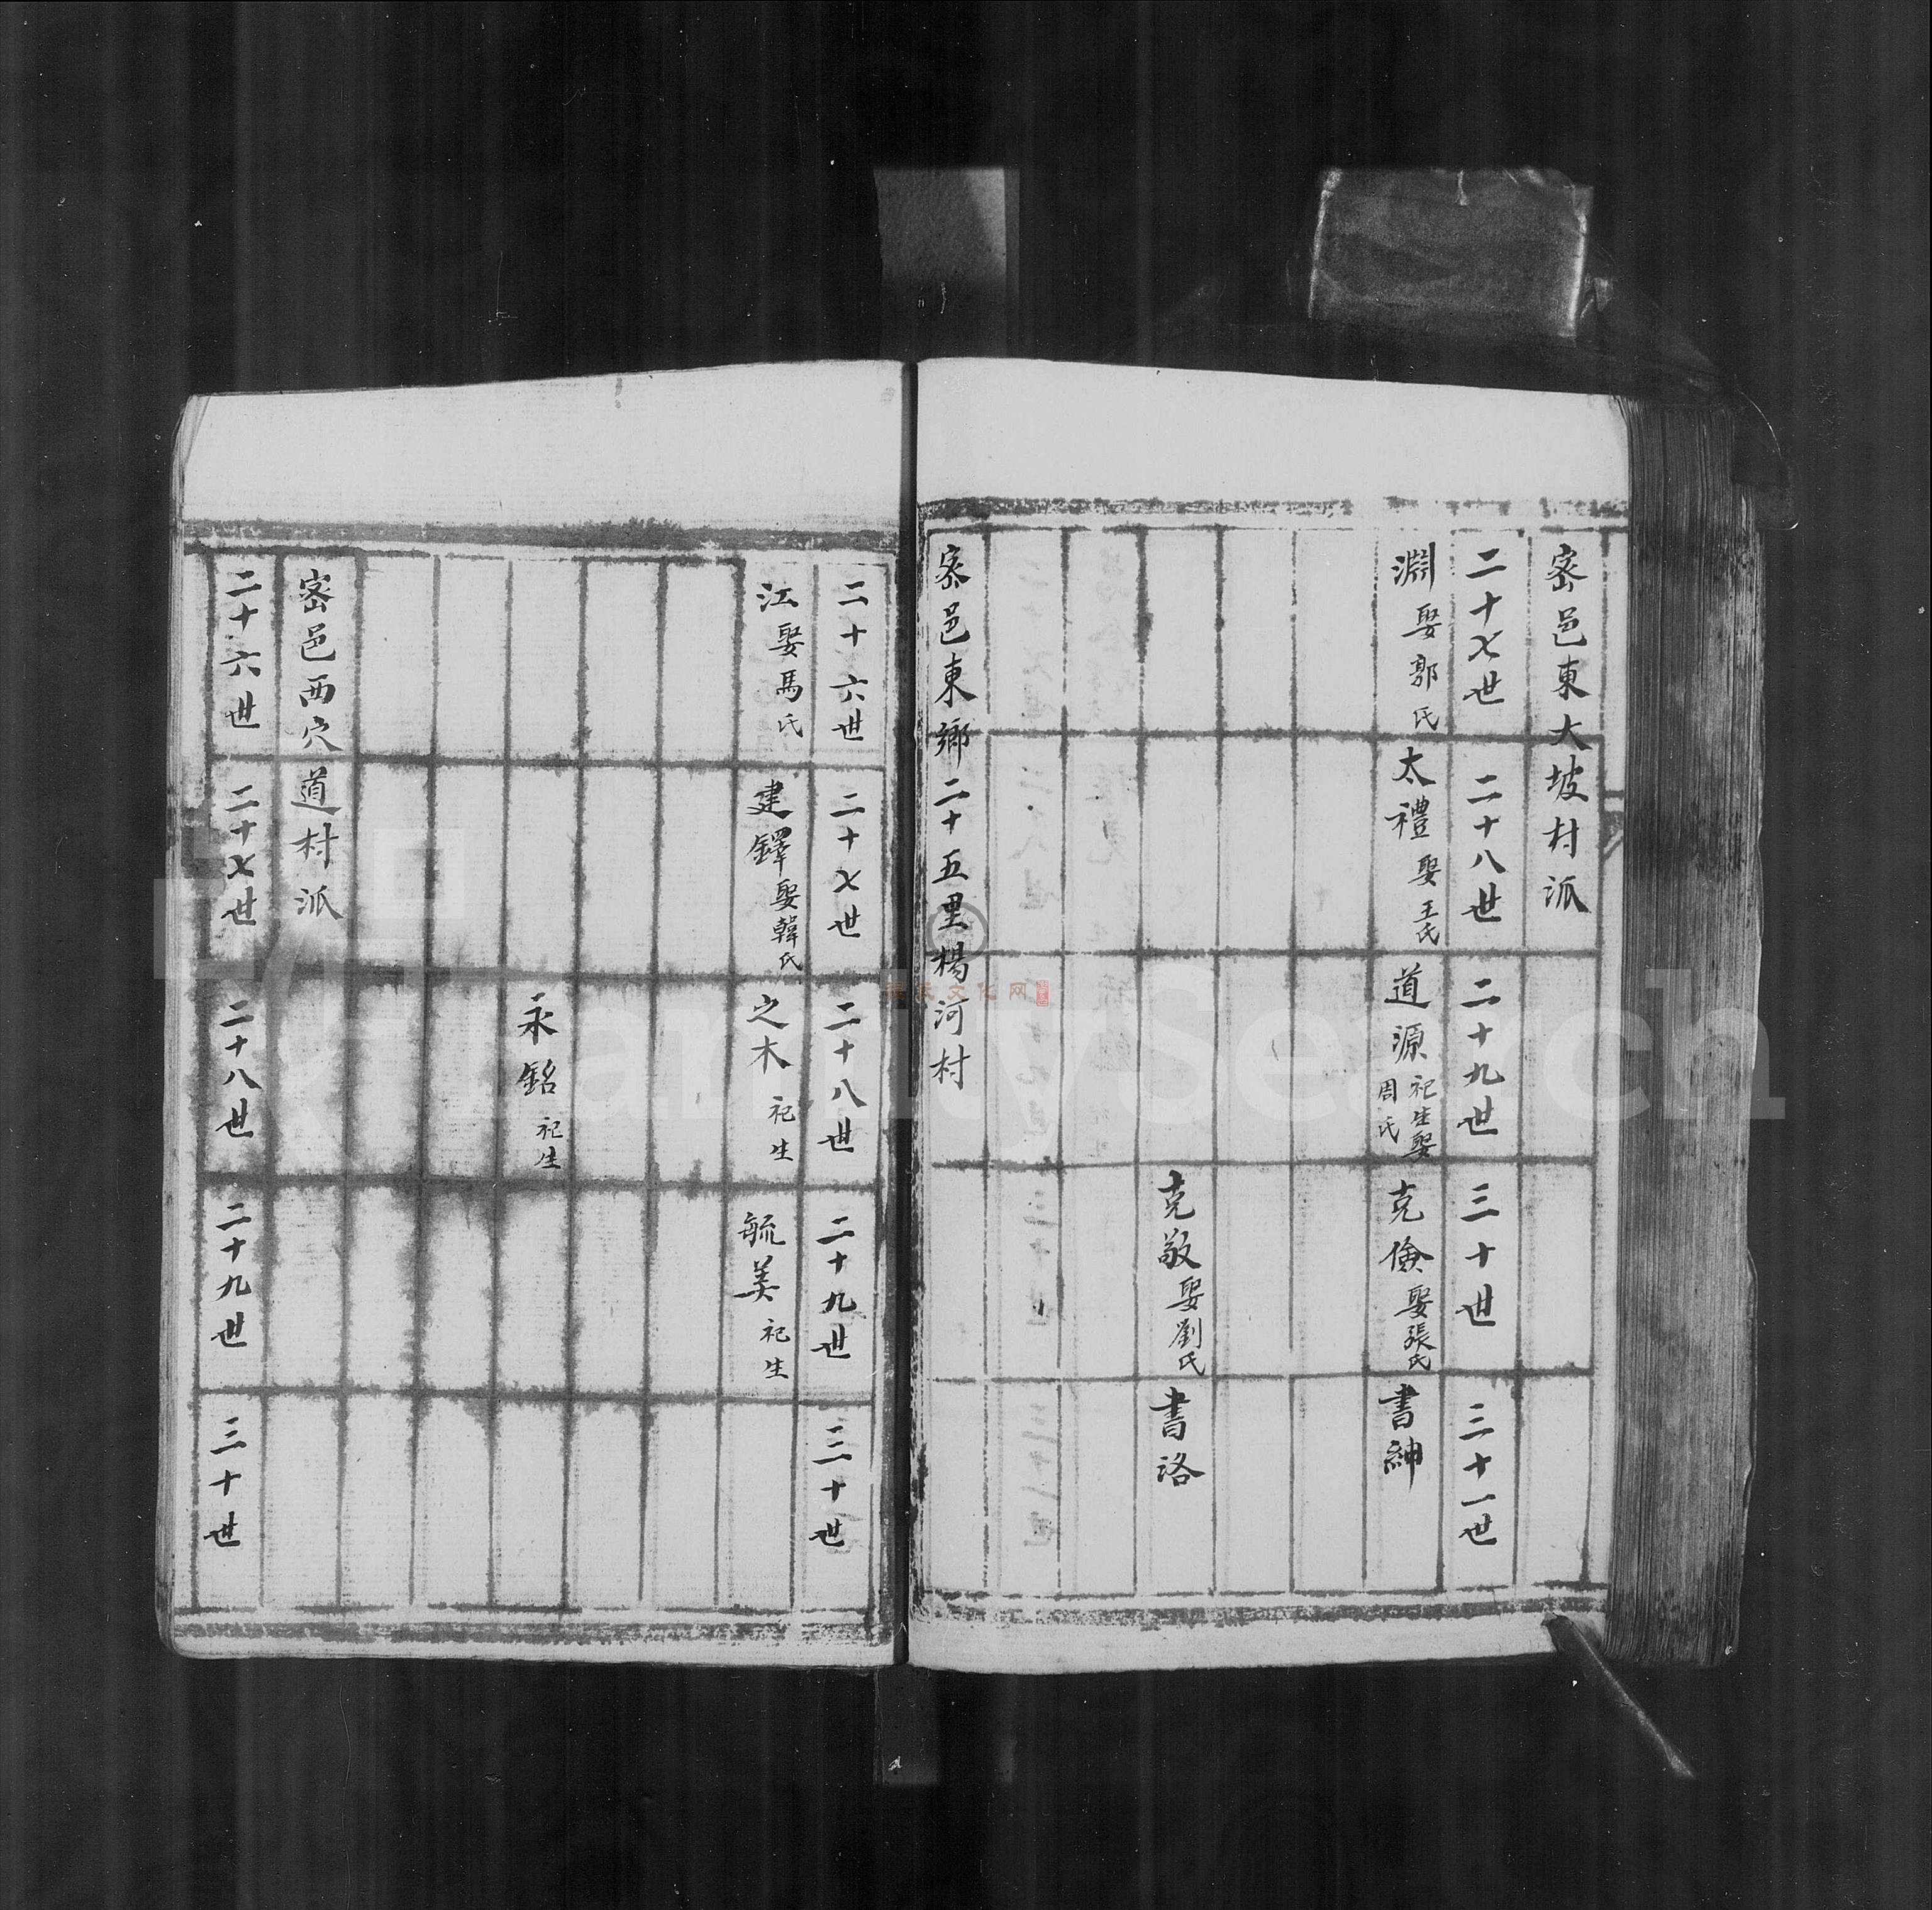 密邑東大坡村派
二十七世 二十八世 二十九世 三十世 三十一世
淵 娶郭氏 太禮 娶王氏 道源 祀生娶周氏 克儉 娶張氏 書紳
克敬 娶劉氏 書洛
密邑東鄉二十五里楊河村
二十六世 二十七世 二十八世 二十九世 三十世
江 娶馬氏 建鐸 娶韓氏 之木 祀生 毓美 祀生
永銘 祀生
密邑西穴道村派
二十六世 二十七世 二十八世 二十九世 三十世
FamilySearch